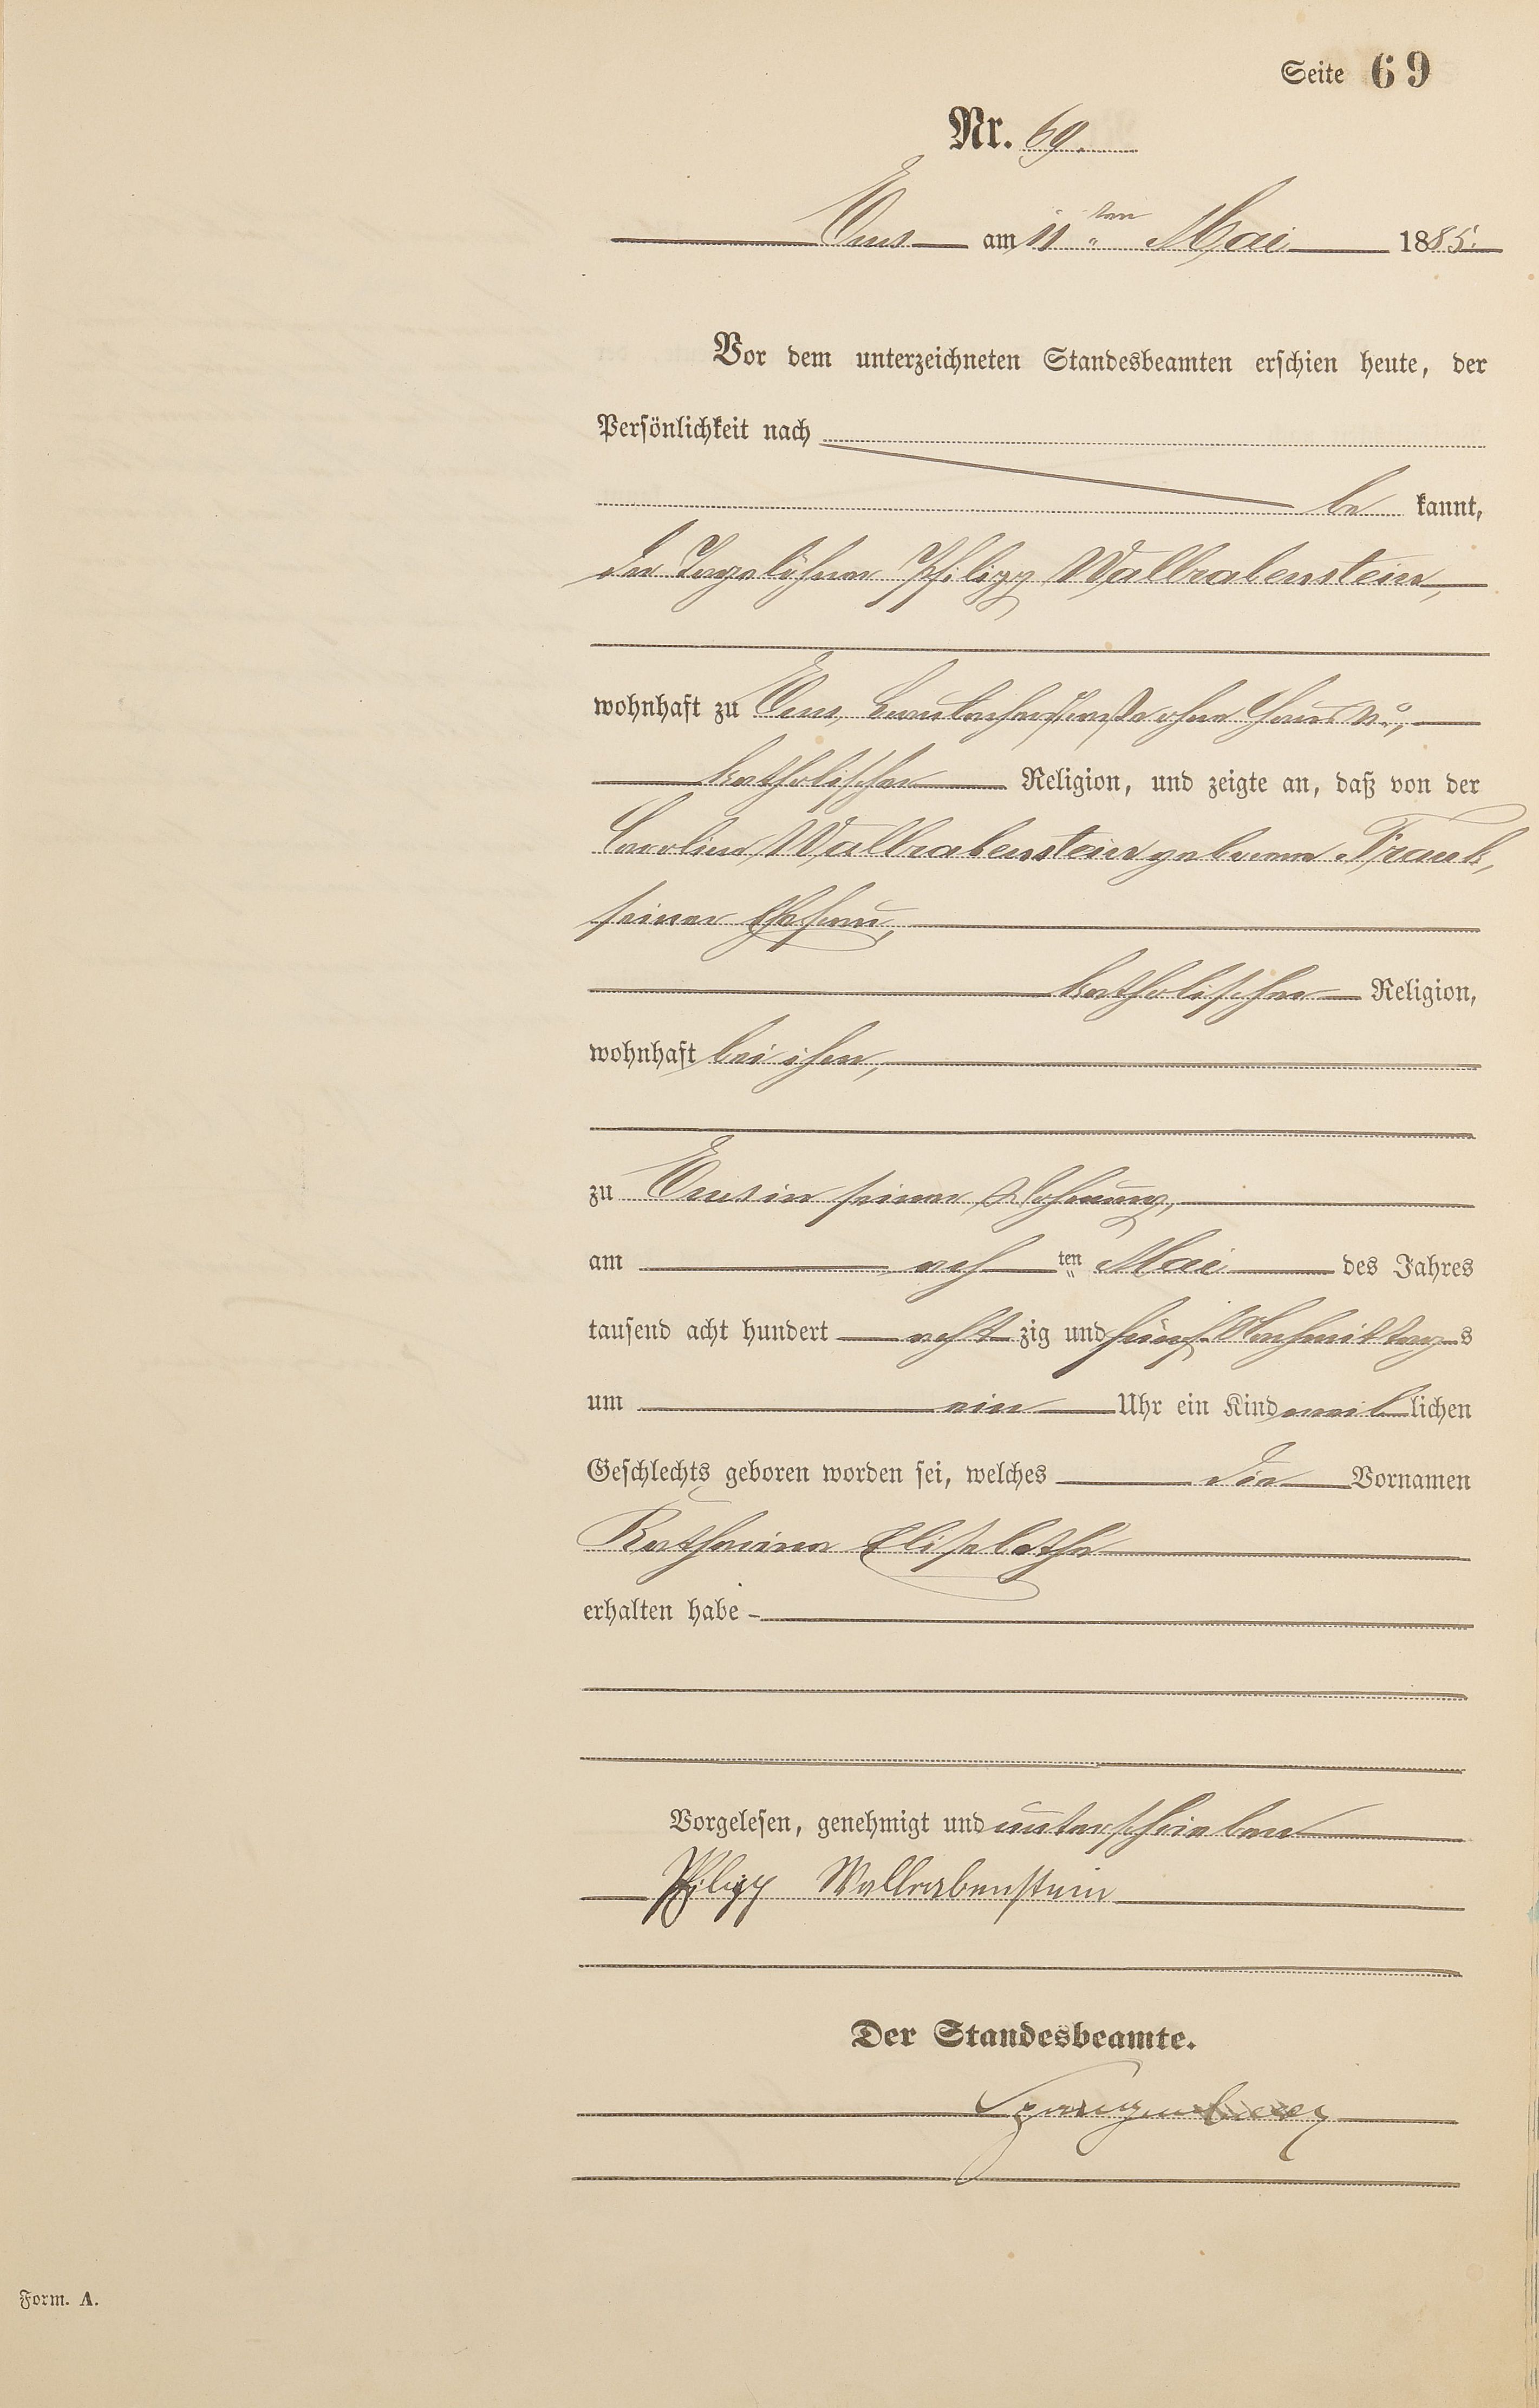 Seite 69
Nr. 69.
Ems am 11ten Mai 1885.
Vor dem unterzeichneten Standesbeamten erschien heute, der
Persönlichkeit nach
be kannt,
der Tagelöhner Philipp Wallrabenstein,
wohnhaft zu Ems, ohne Haus No,
katholischer Religion, und zeigte an, daß von der
Carolina Wallrabenstein geborene Frank,
seiner Ehefrau,
katholischer Religion,
wohnhaft bei ihm,
zu Ems in seiner Wohnung,
am ach ten Mai des Jahres
tausend acht hundert acht zig und fünf Nachmittag s
um ein Uhr ein Kind weib lichen
Geschlechts geboren worden sei, welches die Vornamen
Katharina Elisabetha
erhalten habe
Vorgelesen, genehmigt und unterschrieben
Philipp Wallrabenstein
Der Standesbeamte.
Spangenberg
Form. A.